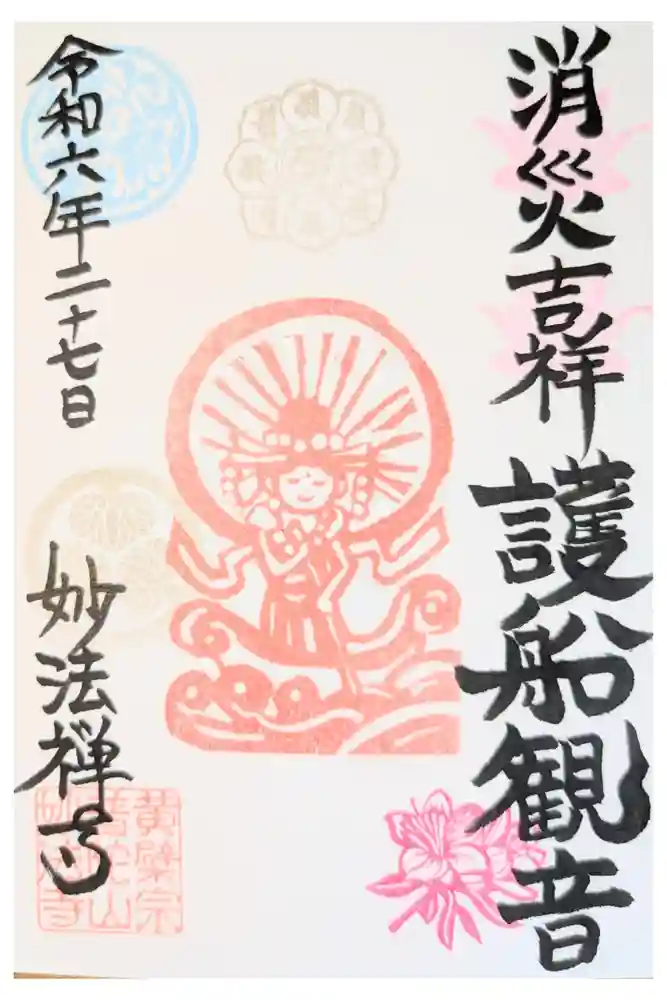 消災吉祥
護船観音
令和六年二十七日
妙法禅寺
黄檗宗
普陀山
妙法寺